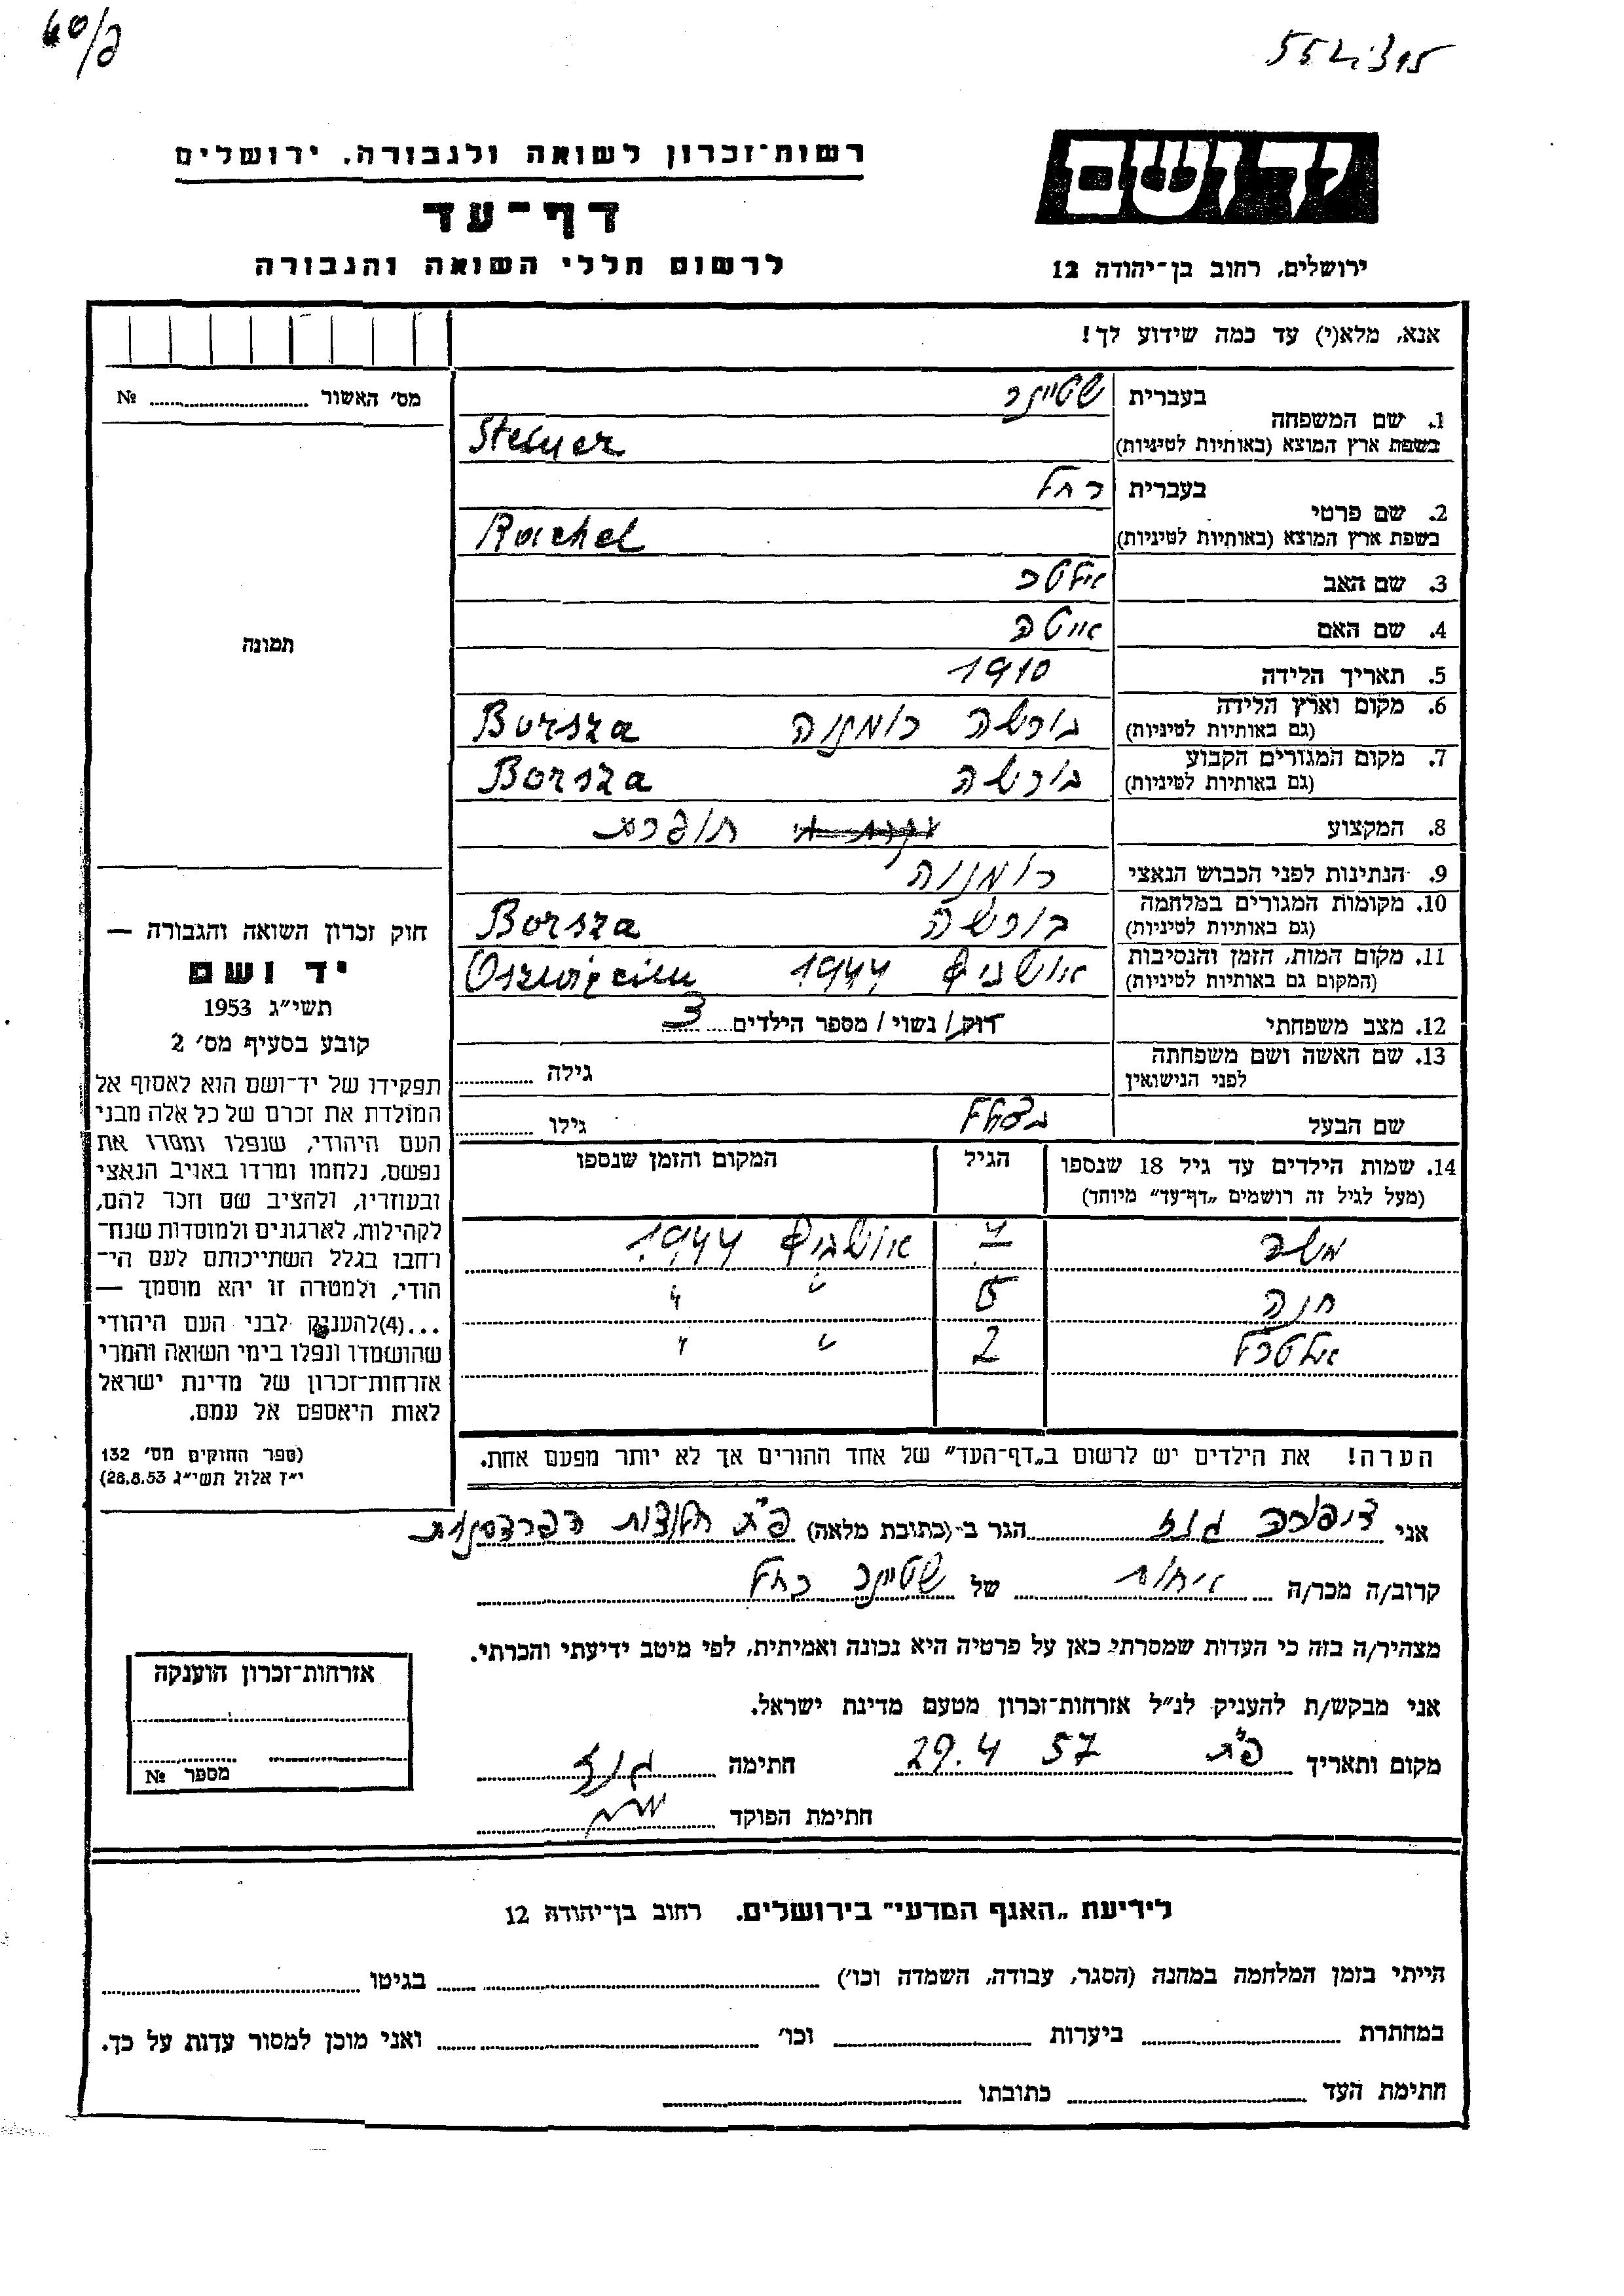 60/ב
יד ושם
רשות־זכרון לשואה ולגבורה, ירושלים
דף־עד
לרשום חללי השואה והגבורה
ירושלים, רחוב בן־יהודה 12
אנא, מלא(י) עד כמה שידוע לך!
מס׳ האשור ........ №
תמונה
1. שם המשפחה בעברית שטיינר
בשפת ארץ המוצא (באותיות לטיניות) Steiner
2. שם פרטי בעברית רחל
בשפת ארץ המוצא (באותיות לטיניות) Rachel
3. שם האב אלטר
4. שם האם איטה
5. תאריך הלידה 1910
6. מקום וארץ הלידה (גם באותיות לטיניות) בורשה רומניה Borsza
7. מקום המגורים הקבוע (גם באותיות לטיניות) בורשה Borsza
8. המקצוע תופרת
9. הנתינות לפני הכבוש הנאצי רומניה
10. מקומות המגורים במלחמה (גם באותיות לטיניות) בורשה Borsza
11. מקום המות, הזמן והנסיבות (המקום גם באותיות לטיניות) אושביץ 1944 Oszwięcim
12. מצב משפחתי רוק/ נשוי/ מספר הילדים..... 3
13. שם האשה ושם משפחתה לפני הנישואין גילה ........
שם הבעל בצלאל גילו ........
14. שמות הילדים עד גיל 18 שנספו הגיל המקום והזמן שנספו
(מעל לגיל זה רושמים „דף־עד” מיוחד)
משה 7 אושביץ 1944
חנה 5 " "
אלטר 2 " "
הערה! את הילדים יש לרשום ב„דף־העד” של אחד ההורים אך לא יותר מפעם אחת.
חוק זכרון השואה והגבורה —
יד ושם
תשי״ג 1953
קובע בסעיף מס׳ 2
תפקידו של יד־ושם הוא לאסוף אל
המולדת את זכרם של כל אלה מבני
העם היהודי, שנפלו ומסרו את
נפשם, נלחמו ומרדו באויב הנאצי
ובעוזריו, ולהציב שם וזכר להם,
לקהילות, לארגונים ולמוסדות שנח־
רחבו בגלל השתייכותם לעם הי־
הודי, ולמטרה זו יהא מוסמך —
...(4)להעניק לבני העם היהודי
שהושמדו ונפלו בימי השואה והמרי
אזרחות־זכרון של מדינת ישראל
לאות היאספם אל עמם.
(ספר החוקים מס׳ 132
י״ז אלול תשי״ג 28.8.53)
אני ציפורה גנז הגר ב־(כתובת מלאה) פ״ת חלוצות הפרדסנות
קרוב/ה מכר/ה אחות של שטיינר רחל
מצהיר/ה בזה כי העדות שמסרתי כאן על פרטיה היא נכונה ואמיתית, לפי מיטב ידיעתי והכרתי.
אני מבקש/ת להעניק לנ״ל אזרחות־זכרון מטעם מדינת ישראל.
מקום ותאריך פ״ת 29.4 57 חתימה גנז
חתימת הפוקד
אזרחות־זכרון הוענקה
מספר №
לידיעת „האגף המדעי” בירושלים. רחוב בן־יהודה 12
הייתי בזמן המלחמה במחנה (הסגר, עבודה, השמדה וכו׳) ........ בגיטו ........
במחתרת ........ ביערות ........ וכו׳ ........ ואני מוכן למסור עדות על כך.
חתימת העד ........ כתובתו ........